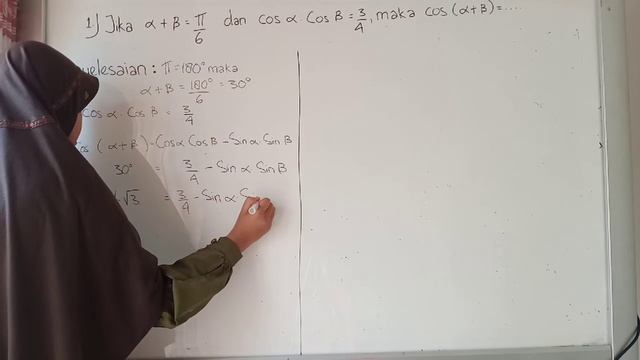 1) Jika α + β = π/6 dan cos α . cos β = 3/4, maka cos (α + β) = ....
yelesaian : π = 180° maka
α + β = 180°/6 = 30°
cos α . cos β = 3/4
os (α + β) - cos α cos β - sin α . sin β
30° = 3/4 - sin α . sin β
√3 = 3/4 - sin α s